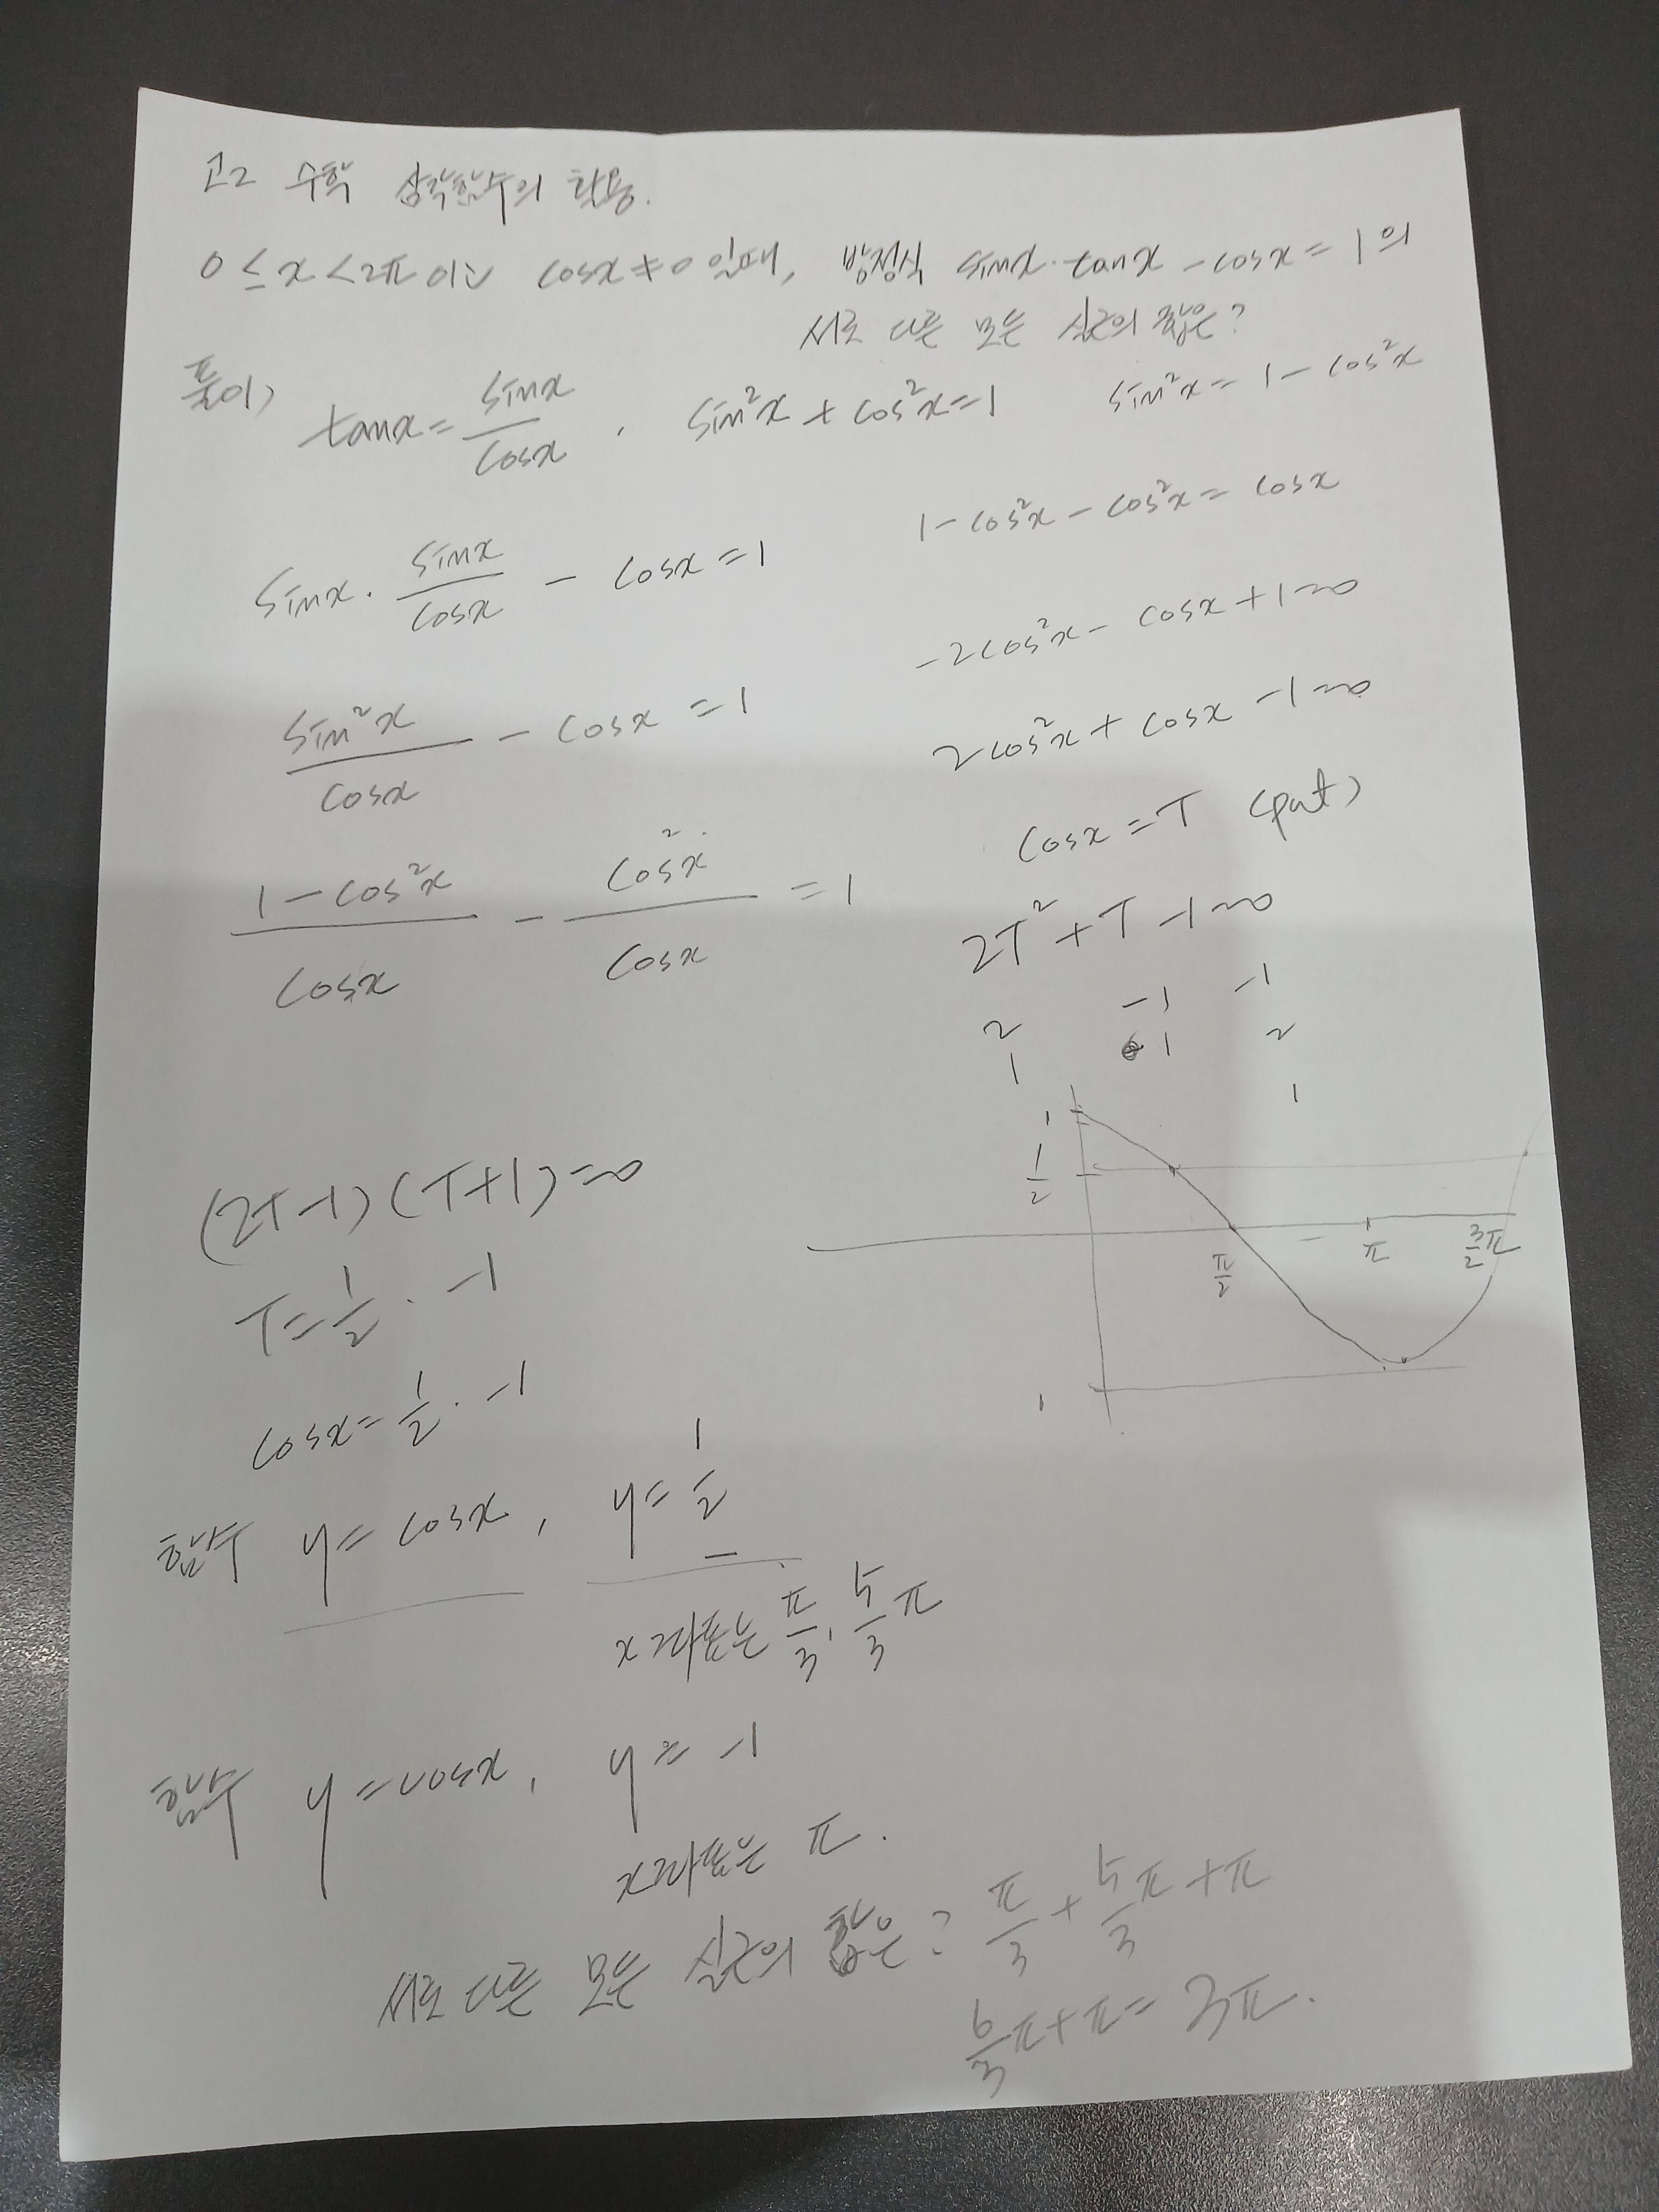 고2 수학 삼각함수의 활용.
0 ≤ x < 2π 이고 cosx ≠ 0 일때, 방정식 sinx · tanx - cosx = 1 의
서로 다른 모든 실근의 합은?
풀이)
tanx = sinx/cosx , sin²x + cos²x = 1 sin²x = 1 - cos²x
sinx · sinx/cosx - cosx = 1
sin²x/cosx - cosx = 1
1 - cos²x/cosx - cos²x/cosx = 1
1 - cos²x - cos²x = cosx
-2cos²x - cosx + 1 = 0
2cos²x + cosx - 1 = 0
cosx = T (put)
2T² + T - 1 = 0
2 -1 -1
1 1 2
1
1
1/2
π/2 π 3/2π
1
(2T-1)(T+1) = 0
T = 1/2 . -1
cosx = 1/2 . -1
함수 y = cosx , y = 1/2
1
x좌표는 π/3, 5/3π
함수 y = cosx , y = -1
x좌표는 π.
서로 다른 모든 실근의 합은? π/3 + 5/3π + π
6/3π + π = 3π.